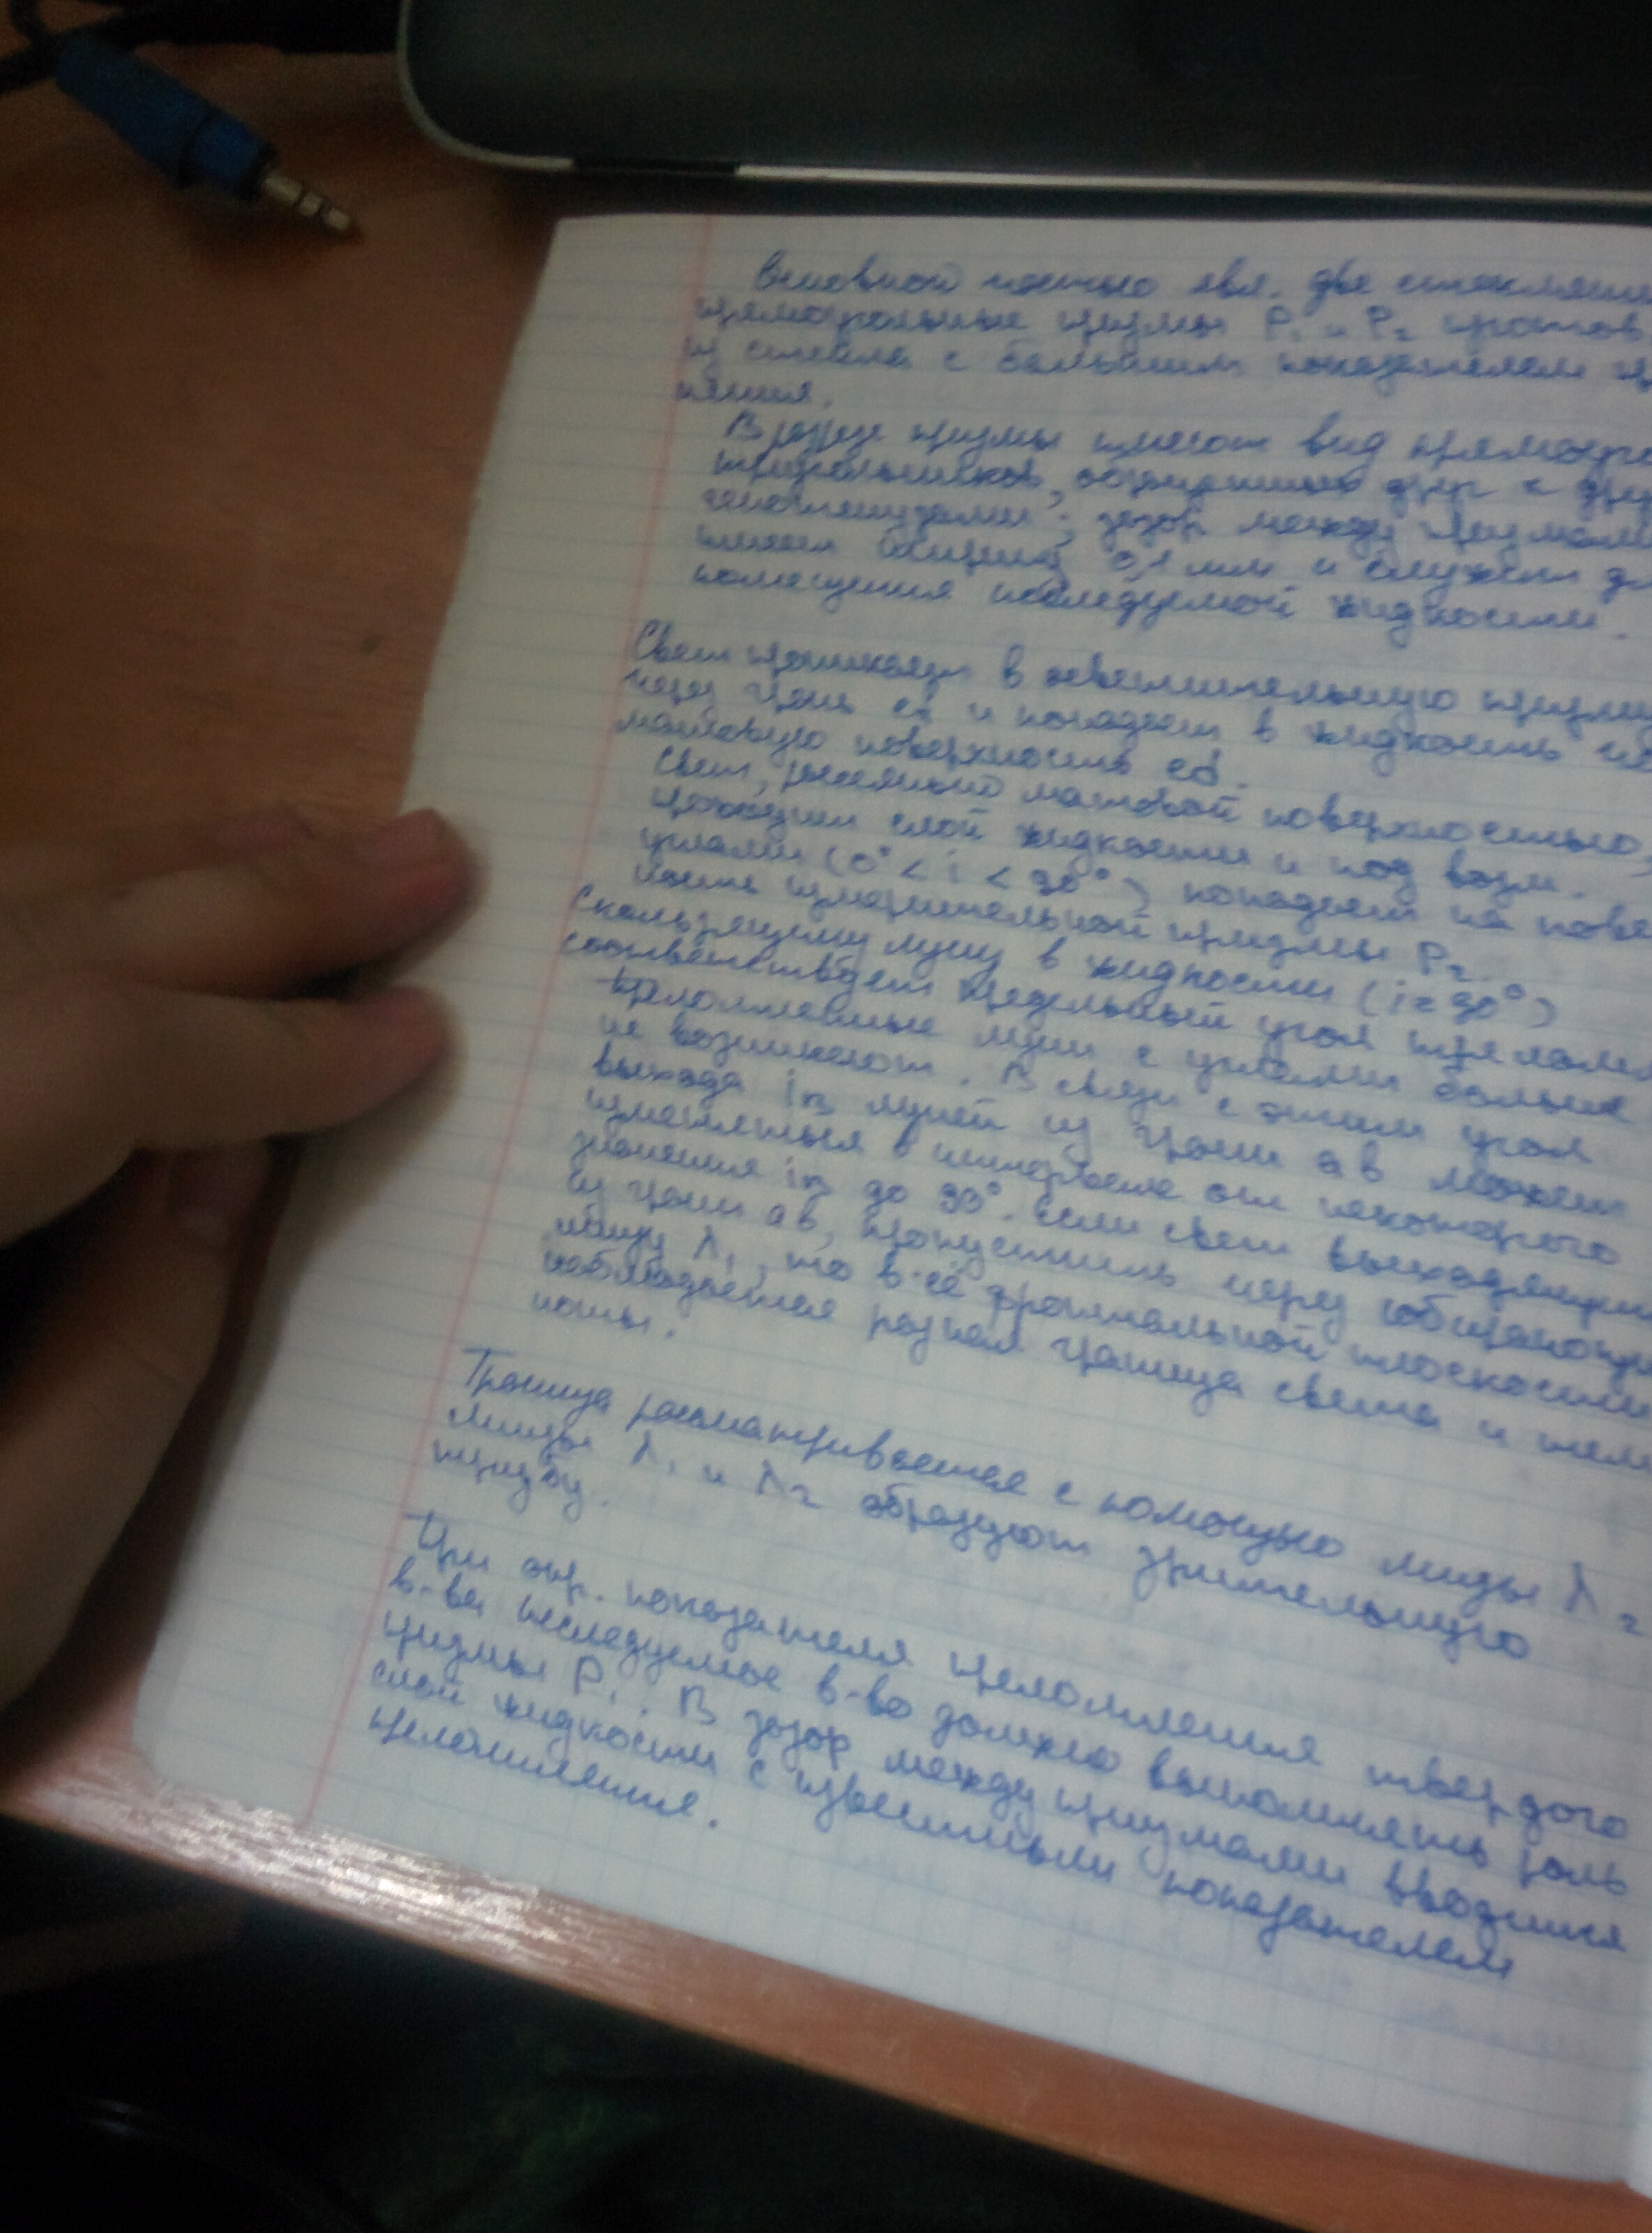 Основной частью явл. две стеклянные
прямоугольные призмы P₁ и P₂ изготов
из стекла с большим показателем п
нения.
В призмы имеют вид прямоуг
треугольников, обращенных друг к дру
гипотенузами; зазор между призмами
имеет 0,1 мм и служит д
помещения исследуемой жидкости.
Свет проникает в осветительную призму
через грань её и попадает в жидкость че
матовую поверхность её.
Свет, рассеянный матовой поверхностью,
проходит слой жидкости и под возм.
углами (0° < i < 90°) попадает на пове
измерительной призмы P₂.
Скользящему лучу в жидкости (i = 90°)
соответствует предельный угол преломл
Преломленные лучи с углами больше
не возникают. В связи с этим угол
выхода iв лучей из грани aв может
изменяться в интервале от некоторого
значения iв до 90°. Если свет выходящий
из грани aв, пропустить через собирающую
линзу λ₁, то в её фокальной плоскости
наблюдается резкая граница света и тем
ноты.
Граница рассматривается с помощью линзы λ₂
Линзы λ₁ и λ₂ образуют зрительную
трубу.
При опр. показателя преломления твердого
в-ва исследуемое в-во должно выполнять роль
призмы P₁. В зазор между призмами вводится
слой жидкости с известным показателем
преломления.